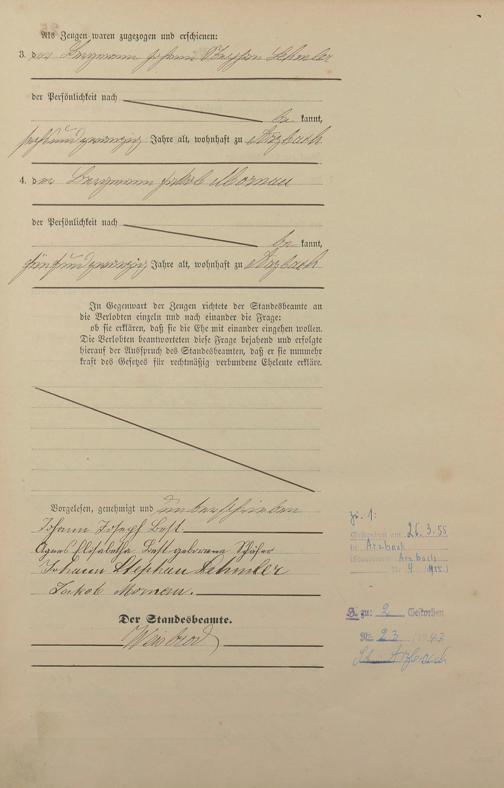 Als Zeugen waren zugezogen und erschienen:
3. der Bergmann Johann Stephan Lehmler
der Persönlichkeit nach
be kannt,
sechsundzwanzig Jahre alt, wohnhaft zu Arzbach
4. der Bergmann Jakob Mornau
der Persönlichkeit nach
be kannt,
fünfundzwanzig Jahre alt, wohnhaft zu Arzbach
In Gegenwart der Zeugen richtete der Standesbeamte an
die Verlobten einzeln und nach einander die Frage:
ob sie erklären, daß sie die Ehe mit einander eingehen wollen.
Die Verlobten beantworteten diese Frage bejahend und erfolgte
hierauf der Ausspruch des Standesbeamten, daß er sie nunmehr
kraft des Gesetzes für rechtmäßig verbundene Eheleute erkläre.
Vorgelesen, genehmigt und unterschrieben
Johann Joseph Best.
Agnes Elisabetha Best geborene
Johann Stephan Lehmler
Jakob Mornau.
Der Standesbeamte.
zu 1:
Gestorben am 26.3.55
in Arzbach
Standesamt Arzbach
Nr. 4
H. zu: 2 Gestorben
Nr. 23